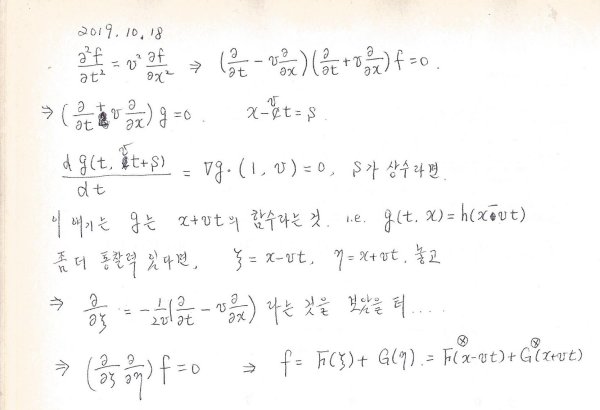 2019.10.18
∂²f/∂t² = v² ∂f/∂x² ⇒ (∂/∂t - v ∂/∂x)(∂/∂t + v ∂/∂x) f = 0.
⇒ (∂/∂t + v ∂/∂x) g = 0. x - vt = s
d g(t, vt+s)/dt = ∇g·(1, v) = 0, s가 상수라면.
이 얘기는 g는 x+vt의 함수라는 것. i.e. g(t, x) = h(x - vt)
좀 더 통찰력 있다면, ξ = x-vt, η = x+vt. 놓고
⇒ ∂/∂ξ = -1/2v (∂/∂t - v ∂/∂x) 라는 것을 보았을 터....
⇒ (∂/∂ξ ∂/∂η) f = 0 ⇒ f = F(ξ) + G(η) = F(x-vt) + G(x+vt)